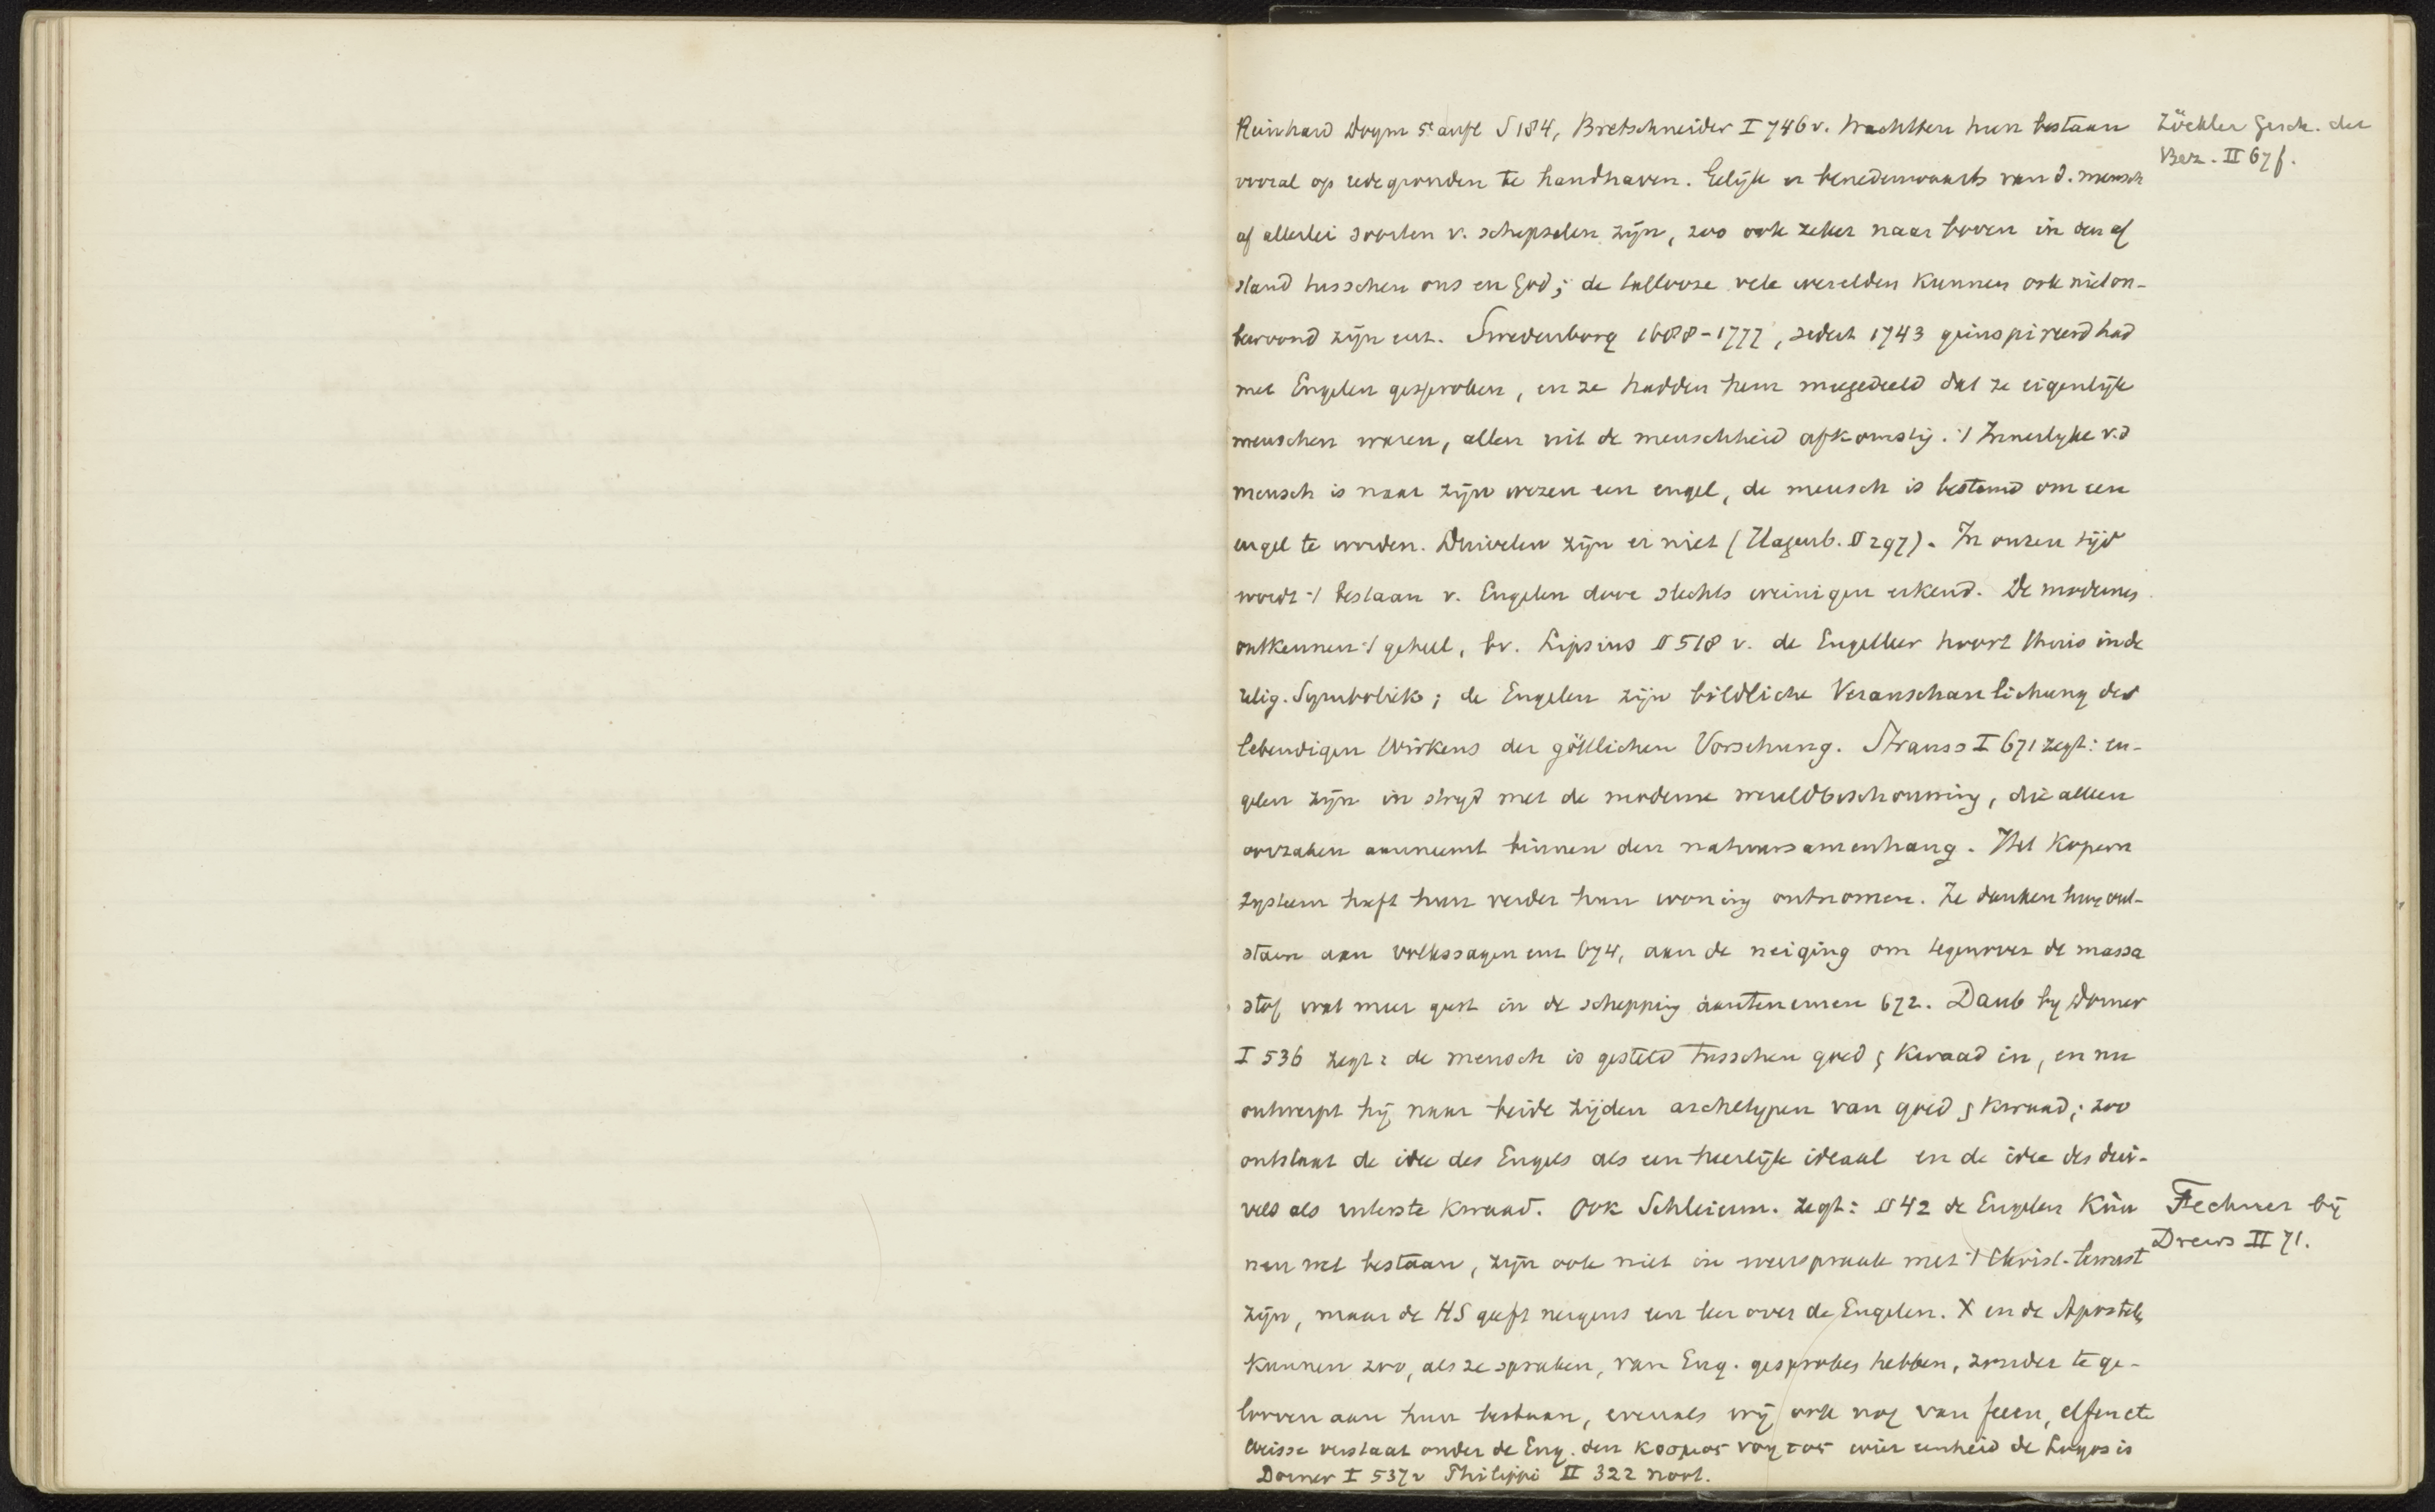 Reinhard Dogm 5e aufl S 184, Bretschneider I 746 v. trachtten hun bestaan
vooral op redegronden te handhaven. Gelijk er benedenwaarts van d. mensch
af allerlei soorten v. schepselen zijn, zoo ook zeker naar boven in den af
stand tusschen ons en God; de talloose vele werelden kunnen ook niet on-
bewoond zijn enz. Swedenborg 1688-1772, sedert 1743 geinspireerd had
met Engelen gesproken, en ze hadden hem meegedeeld dat ze eigenlijk
menschen waren, allen uit de menschheid afkomstig. 't Innerlyke v.d
mensch is naar zijn wezen een engel, de mensch is bestemd om een
engel te worden. Duivelen zijn er niet (Hagenb. II 297). In onzen tijd
wordt 't bestaan v. Engelen door slechts weinigen erkend. De modernes
ontkennen 't geheel, bv. Lipsius § 518 v. de Engelleer hoort thuis in de
relig. Symboliek; de Engelen zijn bildliche Veranschaulichung des
lebendigen Wirkens der göttlichen Vorsehung. Strauss I 671 zegt: en-
gelen zijn in stryd met de moderne wereldbeschouwing, die alleen
oorzaken aanneemt binnen den natuursamenhang. Het Kopern
systeem heeft hun verder hun woning ontnomen. Ze danken hun ont-
staan aan volkssagen enz 674, aan de neiging om tegenover de massa
stof wat meer geest in de schepping aantenemen 672. Daub by Dorner
I 536 zegt: de mensch is gesteld tusschen goed & kwaad in, en nu
ontwerpt hij naar beide zijden archetypen van goed & kwaad; zoo
ontstaat de idee des Engels als een heerlijk ideaal en de idee des dui-
vels als uiterste kwaad. Ook Schleierm. zegt: § 42 de Engelen kun
nen wel bestaan, zijn ook niet in weerspraak met 't Christ. bewust
zijn, maar de HS geeft nergens een leer over de Engelen. X en de Apostels
kunnen zoo, als ze spraken, van Eng. gesproken hebben, zonder te ge-
looven aan hun bestaan, evenals wij ook nog van feeen, elfen etc
Weisse verstaat onder de Eng. den κοσμος νοητος wier eenheid de Logos is
Dorner I 537 v Philippi II 322 noot.
Zöckler Gesch. der
Bez. II 67 f.
Fechner bij
Drews II 71.